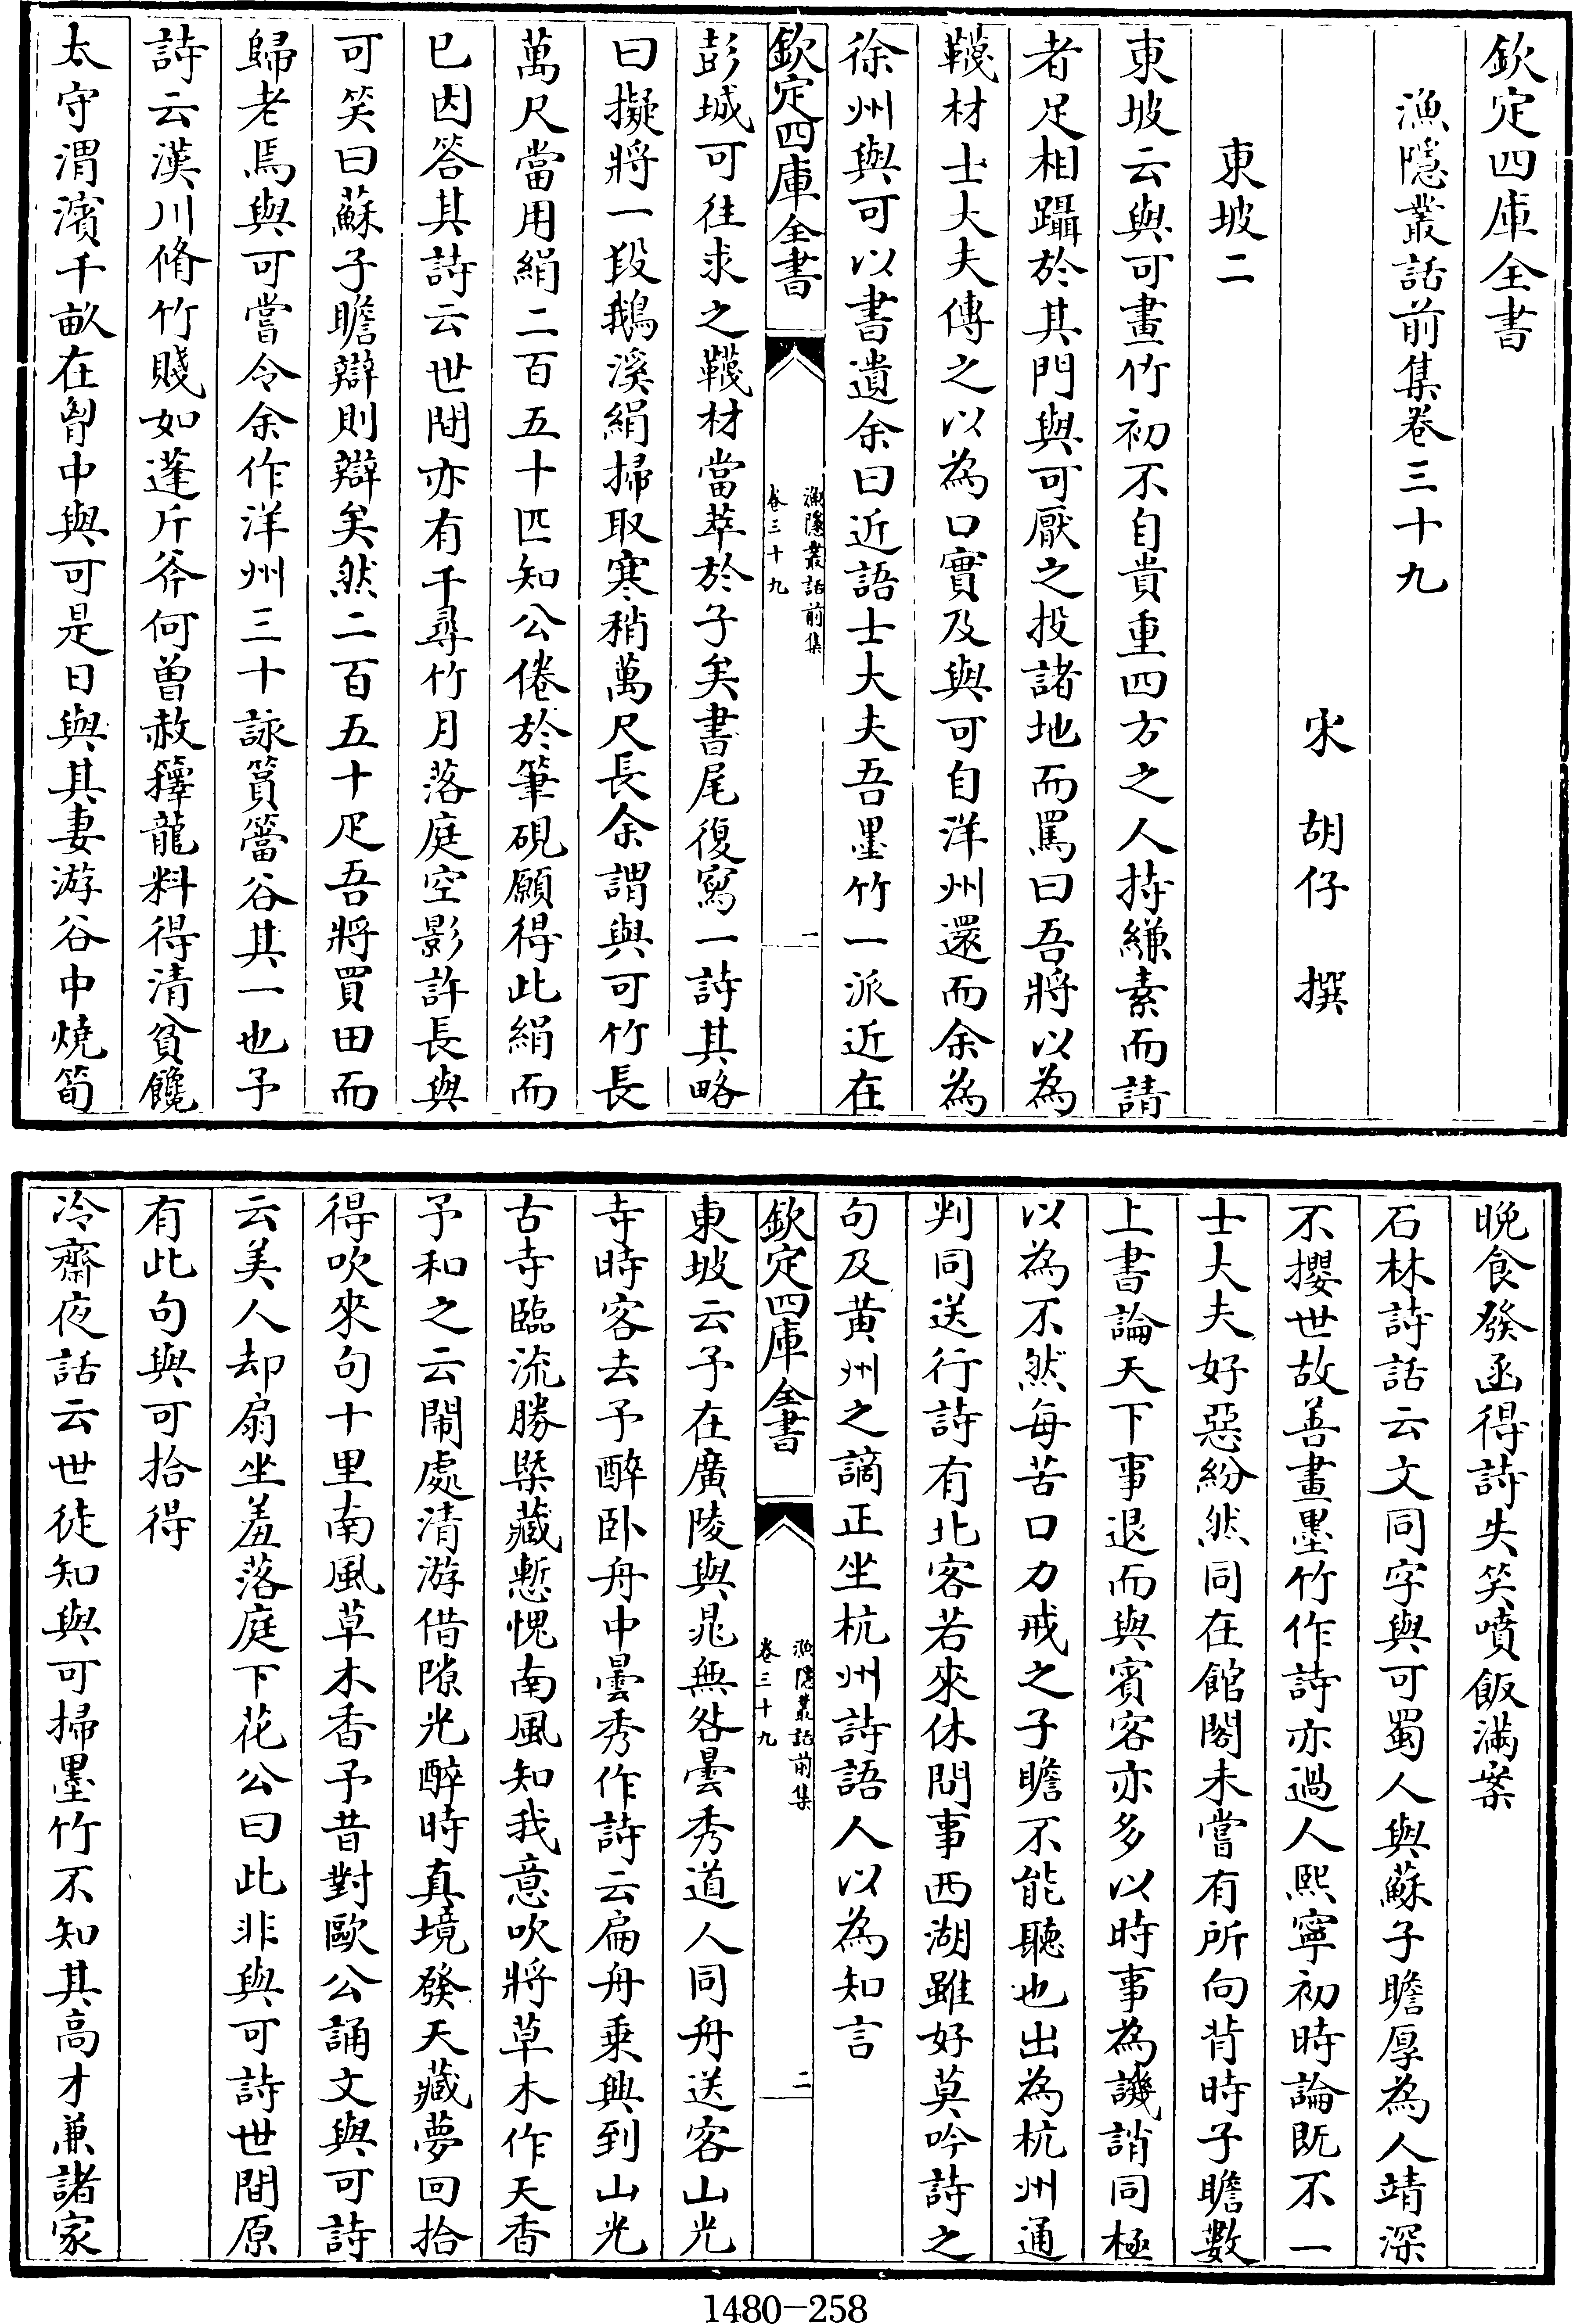 欽定四庫全書
漁隱叢話前集卷三十九
宋 胡仔 撰
東坡二
東坡云與可畫竹初不自貴重四方之人持縑素而請
者足相躡於其門與可厭之投諸地而罵曰吾將以為
韈材士大夫傳之以為口實及與可自洋州還而余為
徐州與可以書遺余曰近語士大夫吾墨竹一派近在
欽定四庫全書
漁隱叢話前集
卷三十九
一
彭城可往求之韈材當萃於子矣書尾復寫一詩其略
曰擬將一段鵝溪絹掃取寒稍萬尺長余謂與可竹長
萬尺當用絹二百五十匹知公倦於筆硯願得此絹而
已因答其詩云世間亦有千尋竹月落庭空影許長與
可笑曰蘇子瞻辯則辯矣然二百五十疋吾將買田而
歸老焉與可嘗令余作洋州三十詠篔簹谷其一也予
詩云漢川脩竹賤如蓬斤斧何曾赦籜龍料得清貧饞
太守渭濱千畝在胷中與可是日與其妻游谷中燒筍
晚食發函得詩失笑噴飯滿案
石林詩話云文同字與可蜀人與蘇子瞻厚為人靖深
不攖世故善畫墨竹作詩亦過人熙寧初時論既不一
士大夫好惡紛然同在館閣未嘗有所向背時子瞻數
上書論天下事退而與賓客亦多以時事為譏誚同極
以為不然每苦口力戒之子瞻不能聽也出為杭州通
判同送行詩有北客若來休問事西湖雖好莫吟詩之
句及黃州之謫正坐杭州詩語人以為知言
欽定四庫全書
漁隱叢話前集
卷三十九
二
東坡云予在廣陵與晁無咎曇秀道人同舟送客山光
寺時客去予醉卧舟中曇秀作詩云扁舟乘興到山光
古寺臨流勝槩藏慙愧南風知我意吹將草木作天香
予和之云閙處清游借隙光醉時真境發天藏夢回拾
得吹來句十里南風草木香予昔對歐公誦文與可詩
云美人却扇坐羞落庭下花公曰此非與可詩世間原
有此句與可拾得
冷齋夜話云世徒知與可掃墨竹不知其高才兼諸家
1480-258